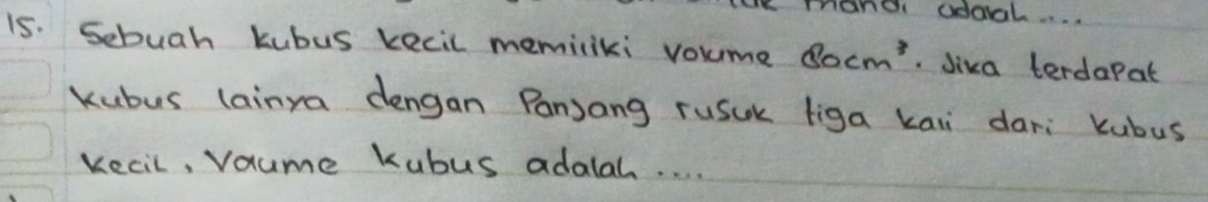 mandi adalah....
15. Sebuah kubus kecil memiliki volume 80cm³. Jika terdapat
kubus lainya dengan Panjang rusuk tiga kali dari kubus
kecil, Volume kubus adalah....